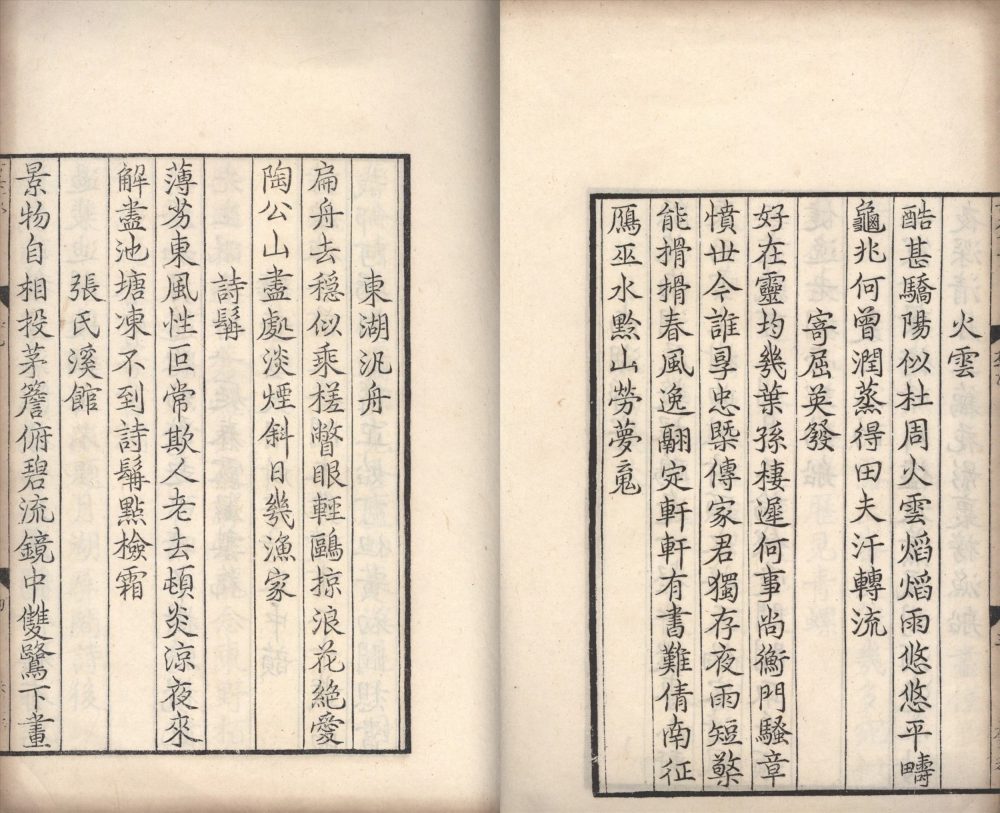 火雲
酷甚驕陽似杜周火雲熖熖雨悠悠平疇
龜兆何曾潤蒸得田夫汗轉流
寄屈英發
好在靈均幾葉孫棲遲何事尚衡門騷章
憤世今誰㝵忠槩傳家君獨存夜雨短檠
能搰搰春風逸翮定軒軒有書難倩南征
鴈巫水黔山勞夢䰟
東湖汎舟
扁舟去穩似乘槎瞥眼輕鷗掠浪花絕愛
陶公山盡處淡煙斜日幾漁家
詩鬢
薄劣東風性叵常欺人老去頓炎涼夜來
解盡池塘凍不到詩鬢點檢霜
張氏溪館
景物自相投茅簷俯碧流鏡中雙鷺下畫